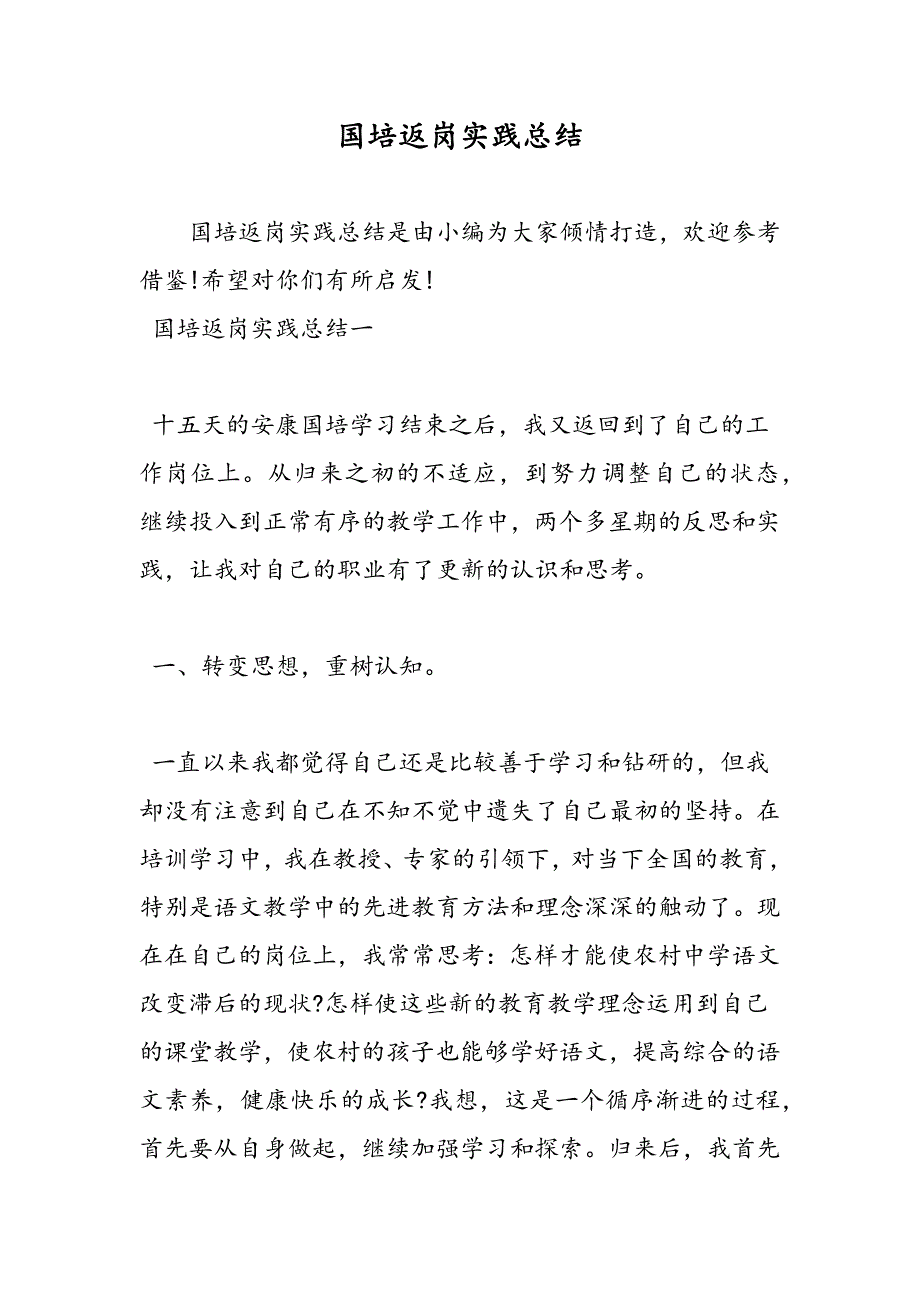 国培返岗实践总结
国培返岗实践总结是由小编为大家倾情打造，欢迎参考
借鉴!希望对你们有所启发!
国培返岗实践总结一
十五天的安康国培学习结束之后，我又返回到了自己的工
作岗位上。从归来之初的不适应，到努力调整自己的状态，
继续投入到正常有序的教学工作中，两个多星期的反思和实
践，让我对自己的职业有了更新的认识和思考。
一、转变思想，重树认知。
一直以来我都觉得自己还是比较善于学习和钻研的，但我
却没有注意到自己在不知不觉中遗失了自己最初的坚持。在
培训学习中，我在教授、专家的引领下，对当下全国的教育，
特别是语文教学中的先进教育方法和理念深深的触动了。现
在在自己的岗位上，我常常思考：怎样才能使农村中学语文
改变滞后的现状?怎样使这些新的教育教学理念运用到自己
的课堂教学，使农村的孩子也能够学好语文，提高综合的语
文素养，健康快乐的成长?我想，这是一个循序渐进的过程，
首先要从自身做起，继续加强学习和探索。归来后，我首先